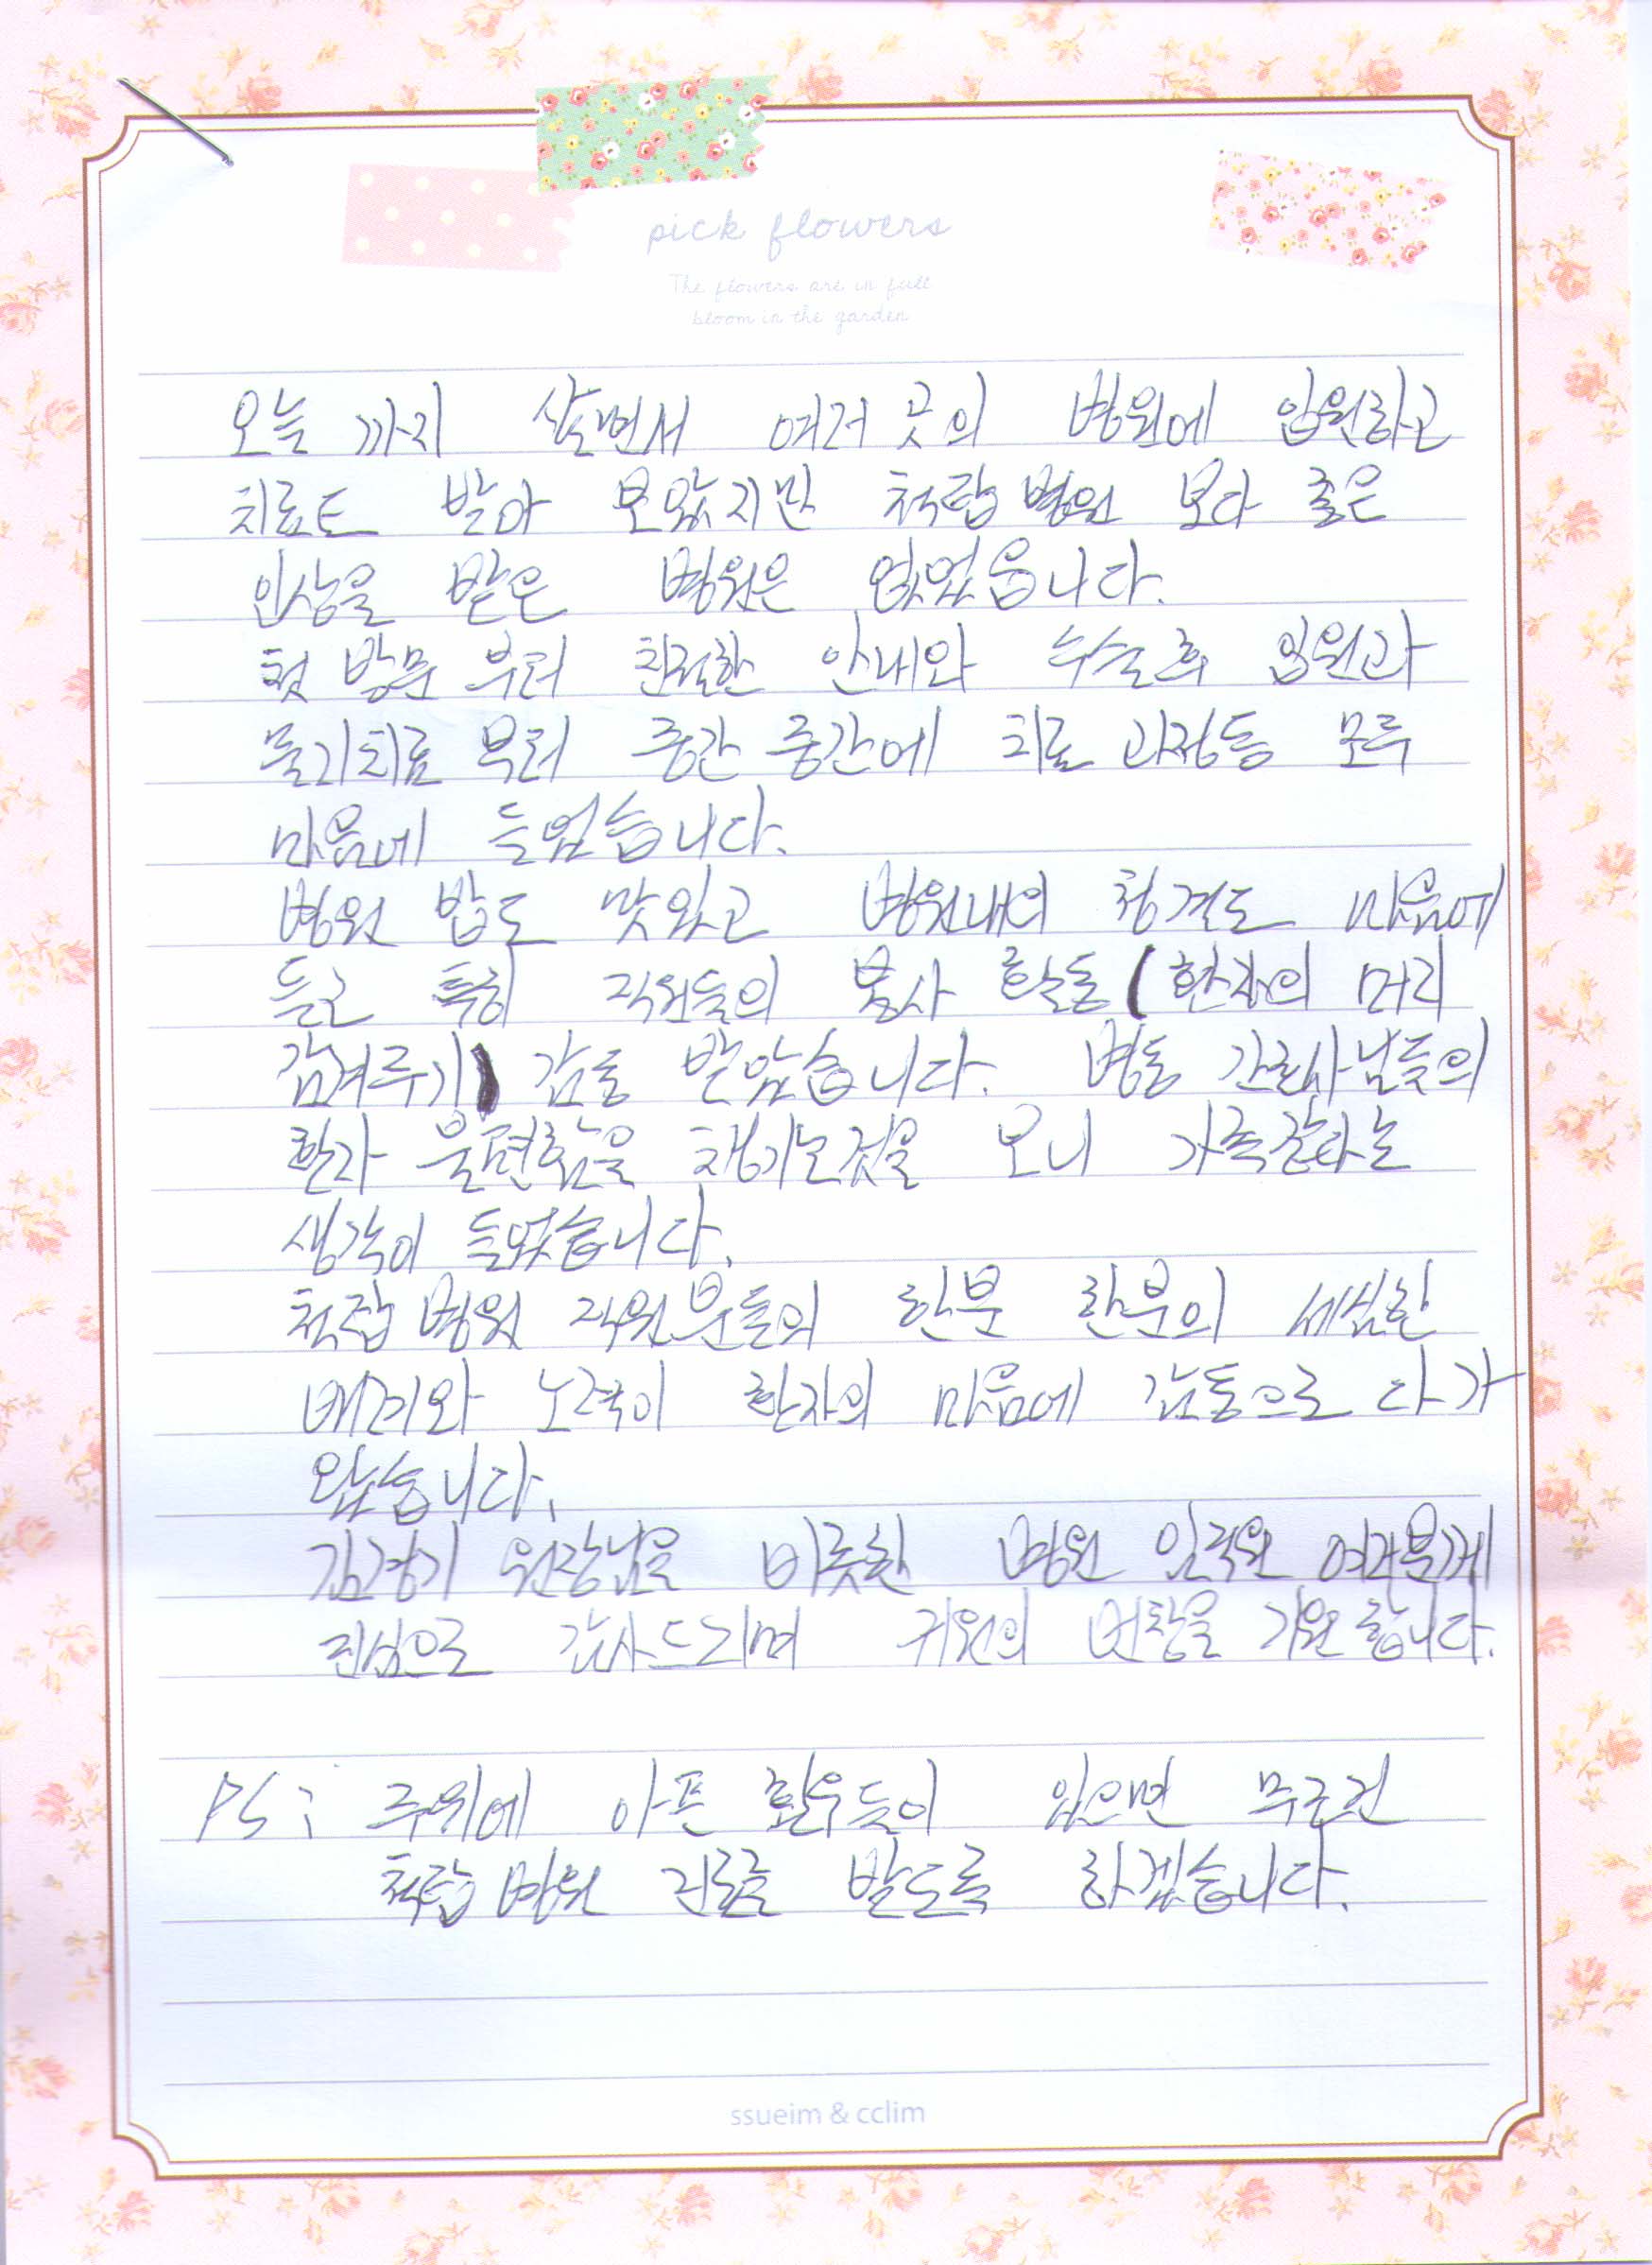 pick flowers
The flowers are in full
bloom in the garden
오늘 까지 살면서 여러 곳의 병원에 입원하고
치료도 받아 보았지만 척탑병원 보다 좋은
인상을 받은 병원은 없었읍니다.
첫 방문 부터 친절한 안내와 수술후 입원과
물리치료 부터 중간 중간에 치료 과정등 모두
마음에 들었습니다.
병원 밥도 맛있고 병원내의 청결도 마음에
들고 특히 직원들의 봉사 활동 (환자의 머리
감겨주기) 감동 받았습니다. 병동 간호사님들의
환자 불편함을 챙기는것을 보니 가족같다는
생각이 들었습니다.
척탑병원 직원분들의 한분 한분의 세심한
배려와 노력이 환자의 마음에 감동으로 다가
왔습니다.
김경기 원장님을 비롯한 병원 임직원 여러분께
진심으로 감사드리며 귀원의 번창을 기원합니다.
PS: 주위에 아픈 환우들이 있으면 무조건
척탑병원 진료를 받도록 하겠습니다.
ssueim & cclim